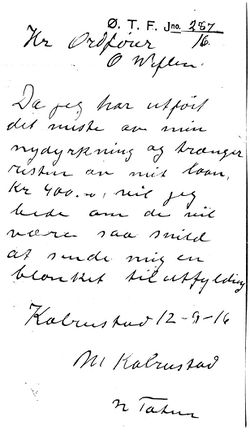 Ø. T. F. Jno. 287/16.
Hr Ordfører
O Wiflen.
Da jeg har utført
det meste av min
nydyrkning og trænger
resten av mit laan,
Kr 400.-, vil jeg
bede om de vil
være saa snild
at sende mig en
blanket til utfylding
Kolrustad 12-9-16
M Kolrustad